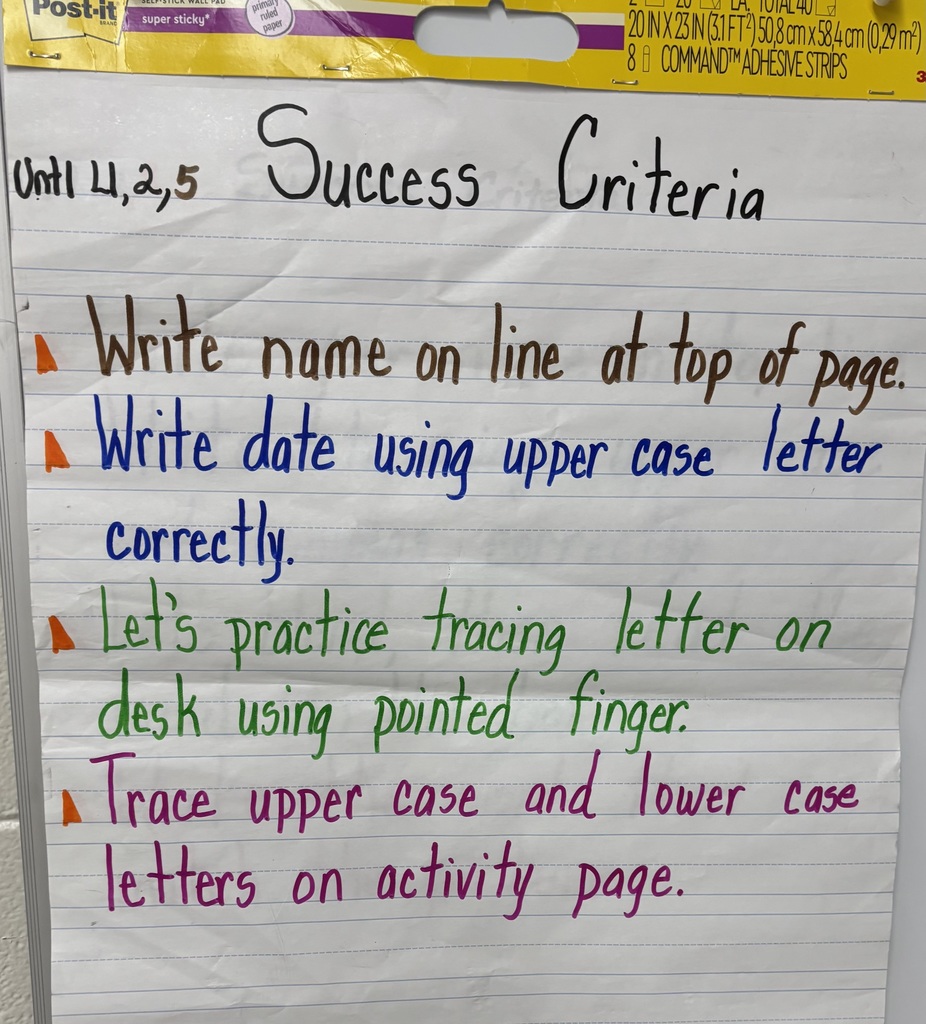 Post-it
BRAND
SELF-STICK WALL PAD
super sticky*
primary
ruled
paper
20 IN X 23 IN (3.1 FT²) 50,8 cm x 58,4 cm (0,29 m²)
8 COMMAND™ ADHESIVE STRIPS
Success Criteria
Write name on line at top of page.
Write date using upper case letter
correctly.
Let's practice tracing letter on
desk using pointed finger.
Trace upper case and lower case
letters on activity page.